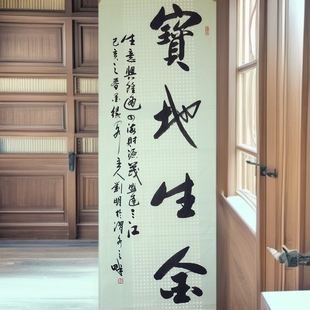 寶地生金
生意興隆通四海財源茂盛達三江
己亥之春主人劉明於渭水之畔